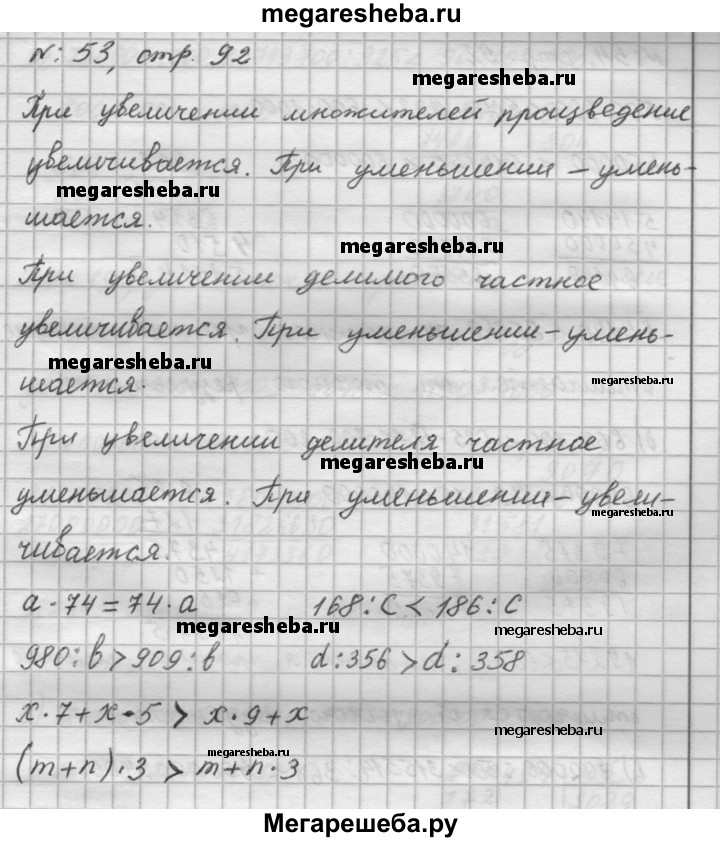 megaresheba.ru
№: 53, стр. 92
megaresheba.ru
При увеличении множителей произведение
увеличивается. При уменьшении – умень-
megaresheba.ru
шается.
megaresheba.ru
При увеличении делимого частное
увеличивается. При уменьшении – умень-
megaresheba.ru
шается.
megaresheba.ru
При увеличении делителя частное
megaresheba.ru
уменьшается. При уменьшении – увели-
megaresheba.ru
чивается.
a · 74 = 74 · a 168 : c < 186 : c
megaresheba.ru megaresheba.ru
980 : b > 909 : b d : 356 > d : 358
x · 7 + x · 5 > x · 9 + x
megaresheba.ru
megaresheba.ru
(m + n) · 3 > m + n · 3
Мегарешеба.ру